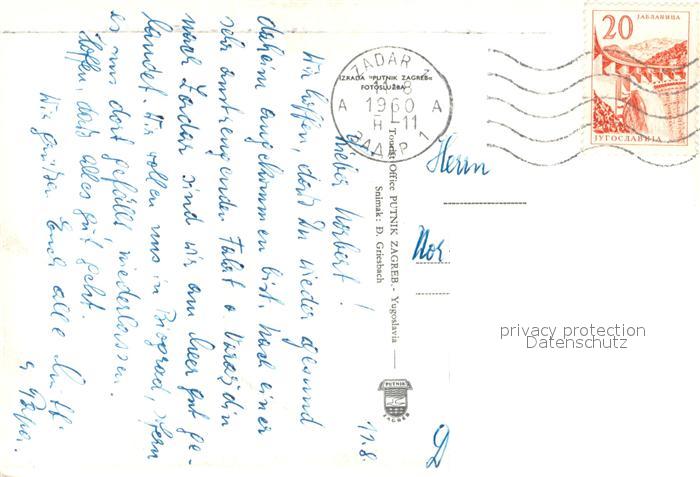 11.8.
Lieber Norbert!
Wir hoffen, daß Du wieder gesund
daheim angekommen bist. Nach einer
sehr anstrengenden Fahrt ü. Varaždin
nach Zadar sind wir am Meer gut ge-
landet. Wir wollen uns in Biograd, sofern
es uns dort gefällt niederlassen.
Hoffen, daß alles gut geht.
Wir grüßen Euch alle Mutti
u Papa.
IZRADA "PUTNIK ZAGREB"
FOTOSLUŽBA
Tourist Office PUTNIK ZAGREB - Yugoslavia
Snimak: Đ. Griesbach
PUTNIK
ZAGREB
ZADAR 1
11-8
A 1960 A
H-11
ЗАДАР 1
20
ЈАБЛАНИЦА
ЈУГОСЛАВИЈА
Herrn
Nor
D
privacy protection
Datenschutz